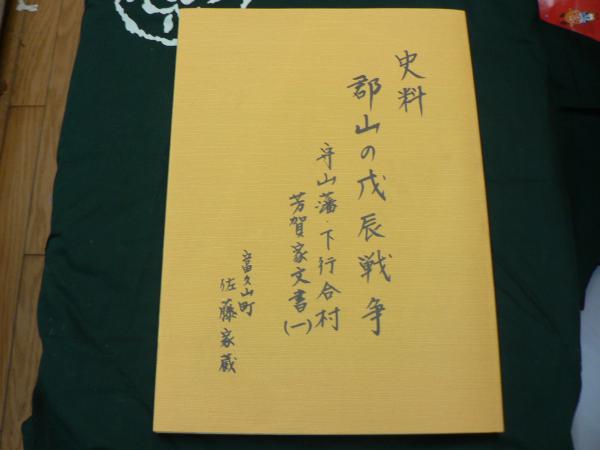 史料
郡山の戊辰戦争
守山藩・下行合村
芳賀家文書(一)
富久山町
佐藤家蔵